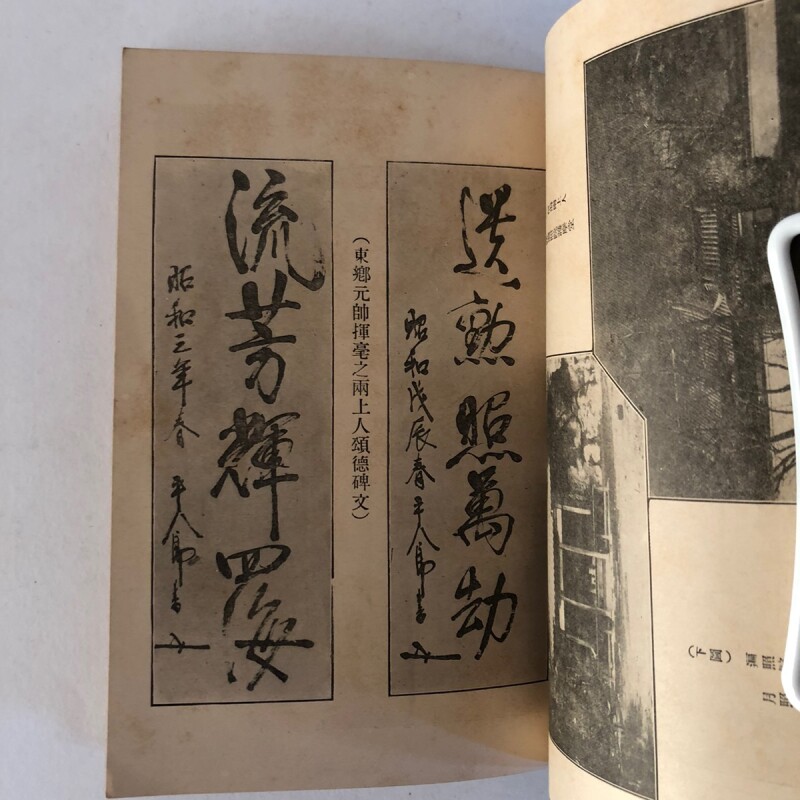 遺勲照萬劫
昭和戊辰春 平八郎書
(東鄉元帥揮毫之兩上人頌德碑文)
流芳輝四海
昭和三年春 平八郎書
(下圖)